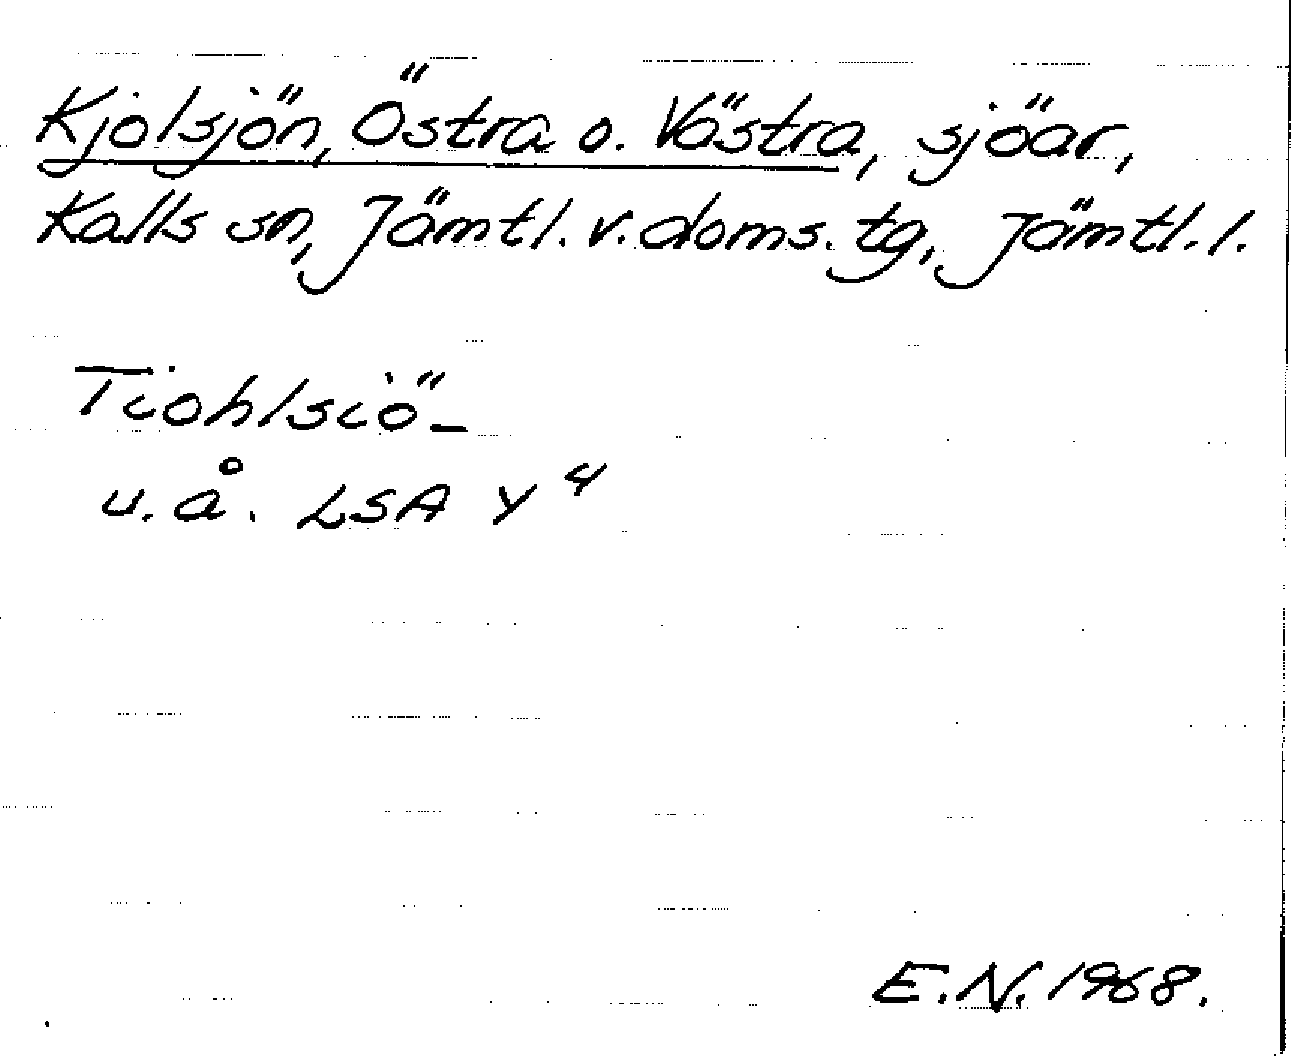 Kjolsjön, Östra o. Västra, sjöar,
Kalls sn, Jämtl. v. doms. tg, Jämtl. l.
Tiohlsiö-
u. å. LSA Y 4
E.N. 1968.